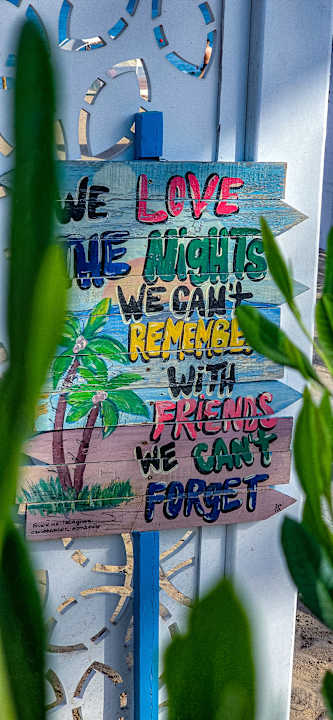 WE LOVE
THE NigHTS
WE CAN't
REMEMBER
WiTH
FRiENDS
WE CAN't
FORGET